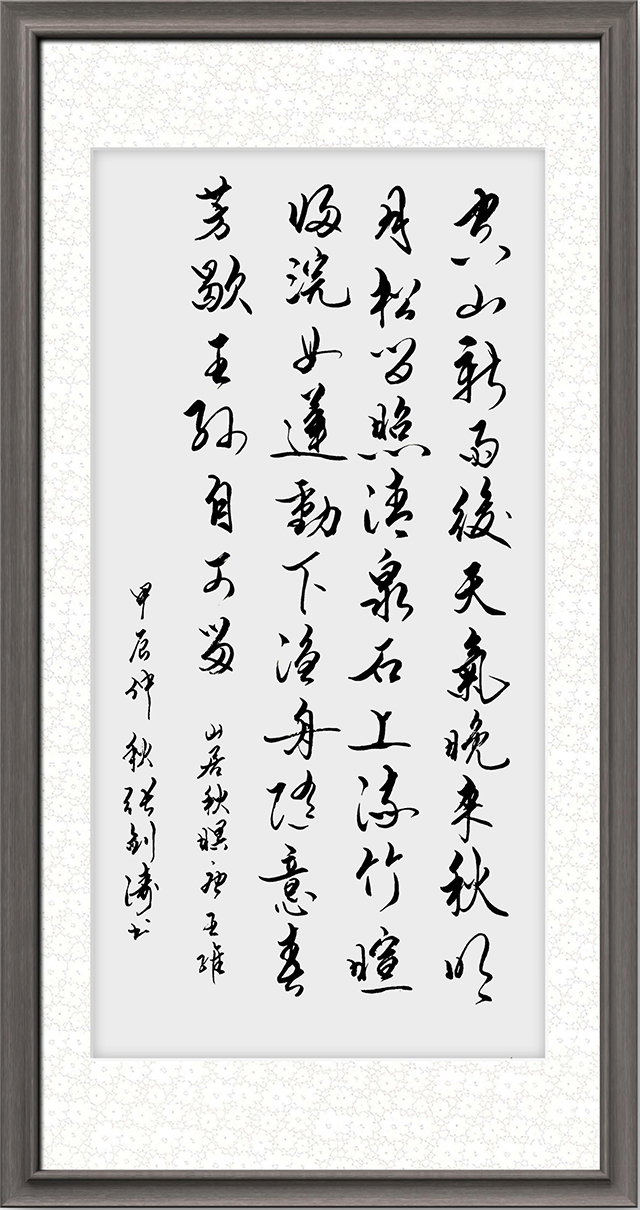 空山新雨後天氣晚来秋明
月松間照清泉石上流竹暄
歸浣女蓮動下漁舟隨意春
芳歇王孫自可留
山居秋暝 唐 王維
甲辰仲秋張劍濤书